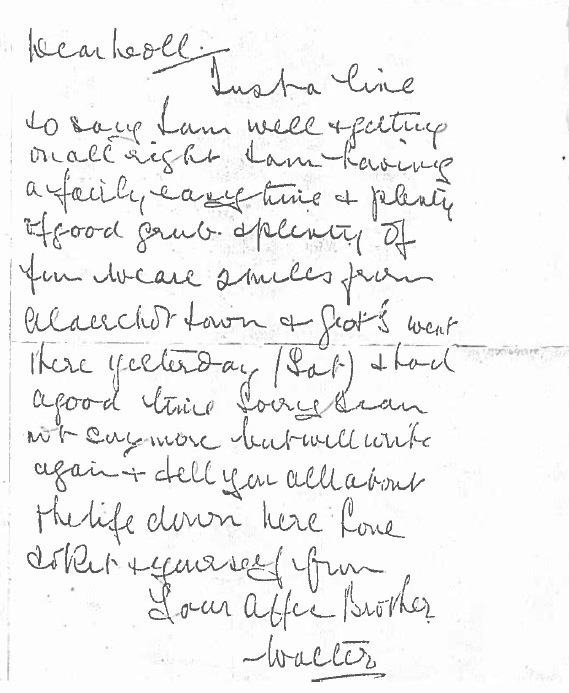 Dear Noll.
Just a line
to say I am well & getting
on all right I am having
a fairly easy time & plenty
of good grub. & plenty of
fun We are 2 miles from
Aldershot town & went
there yesterday (Sat) & had
a good time Sorry I can
not say more but will write
again & tell you all about
the life down here Love
to Kit & yourself from
Your Affec Brother
Walter